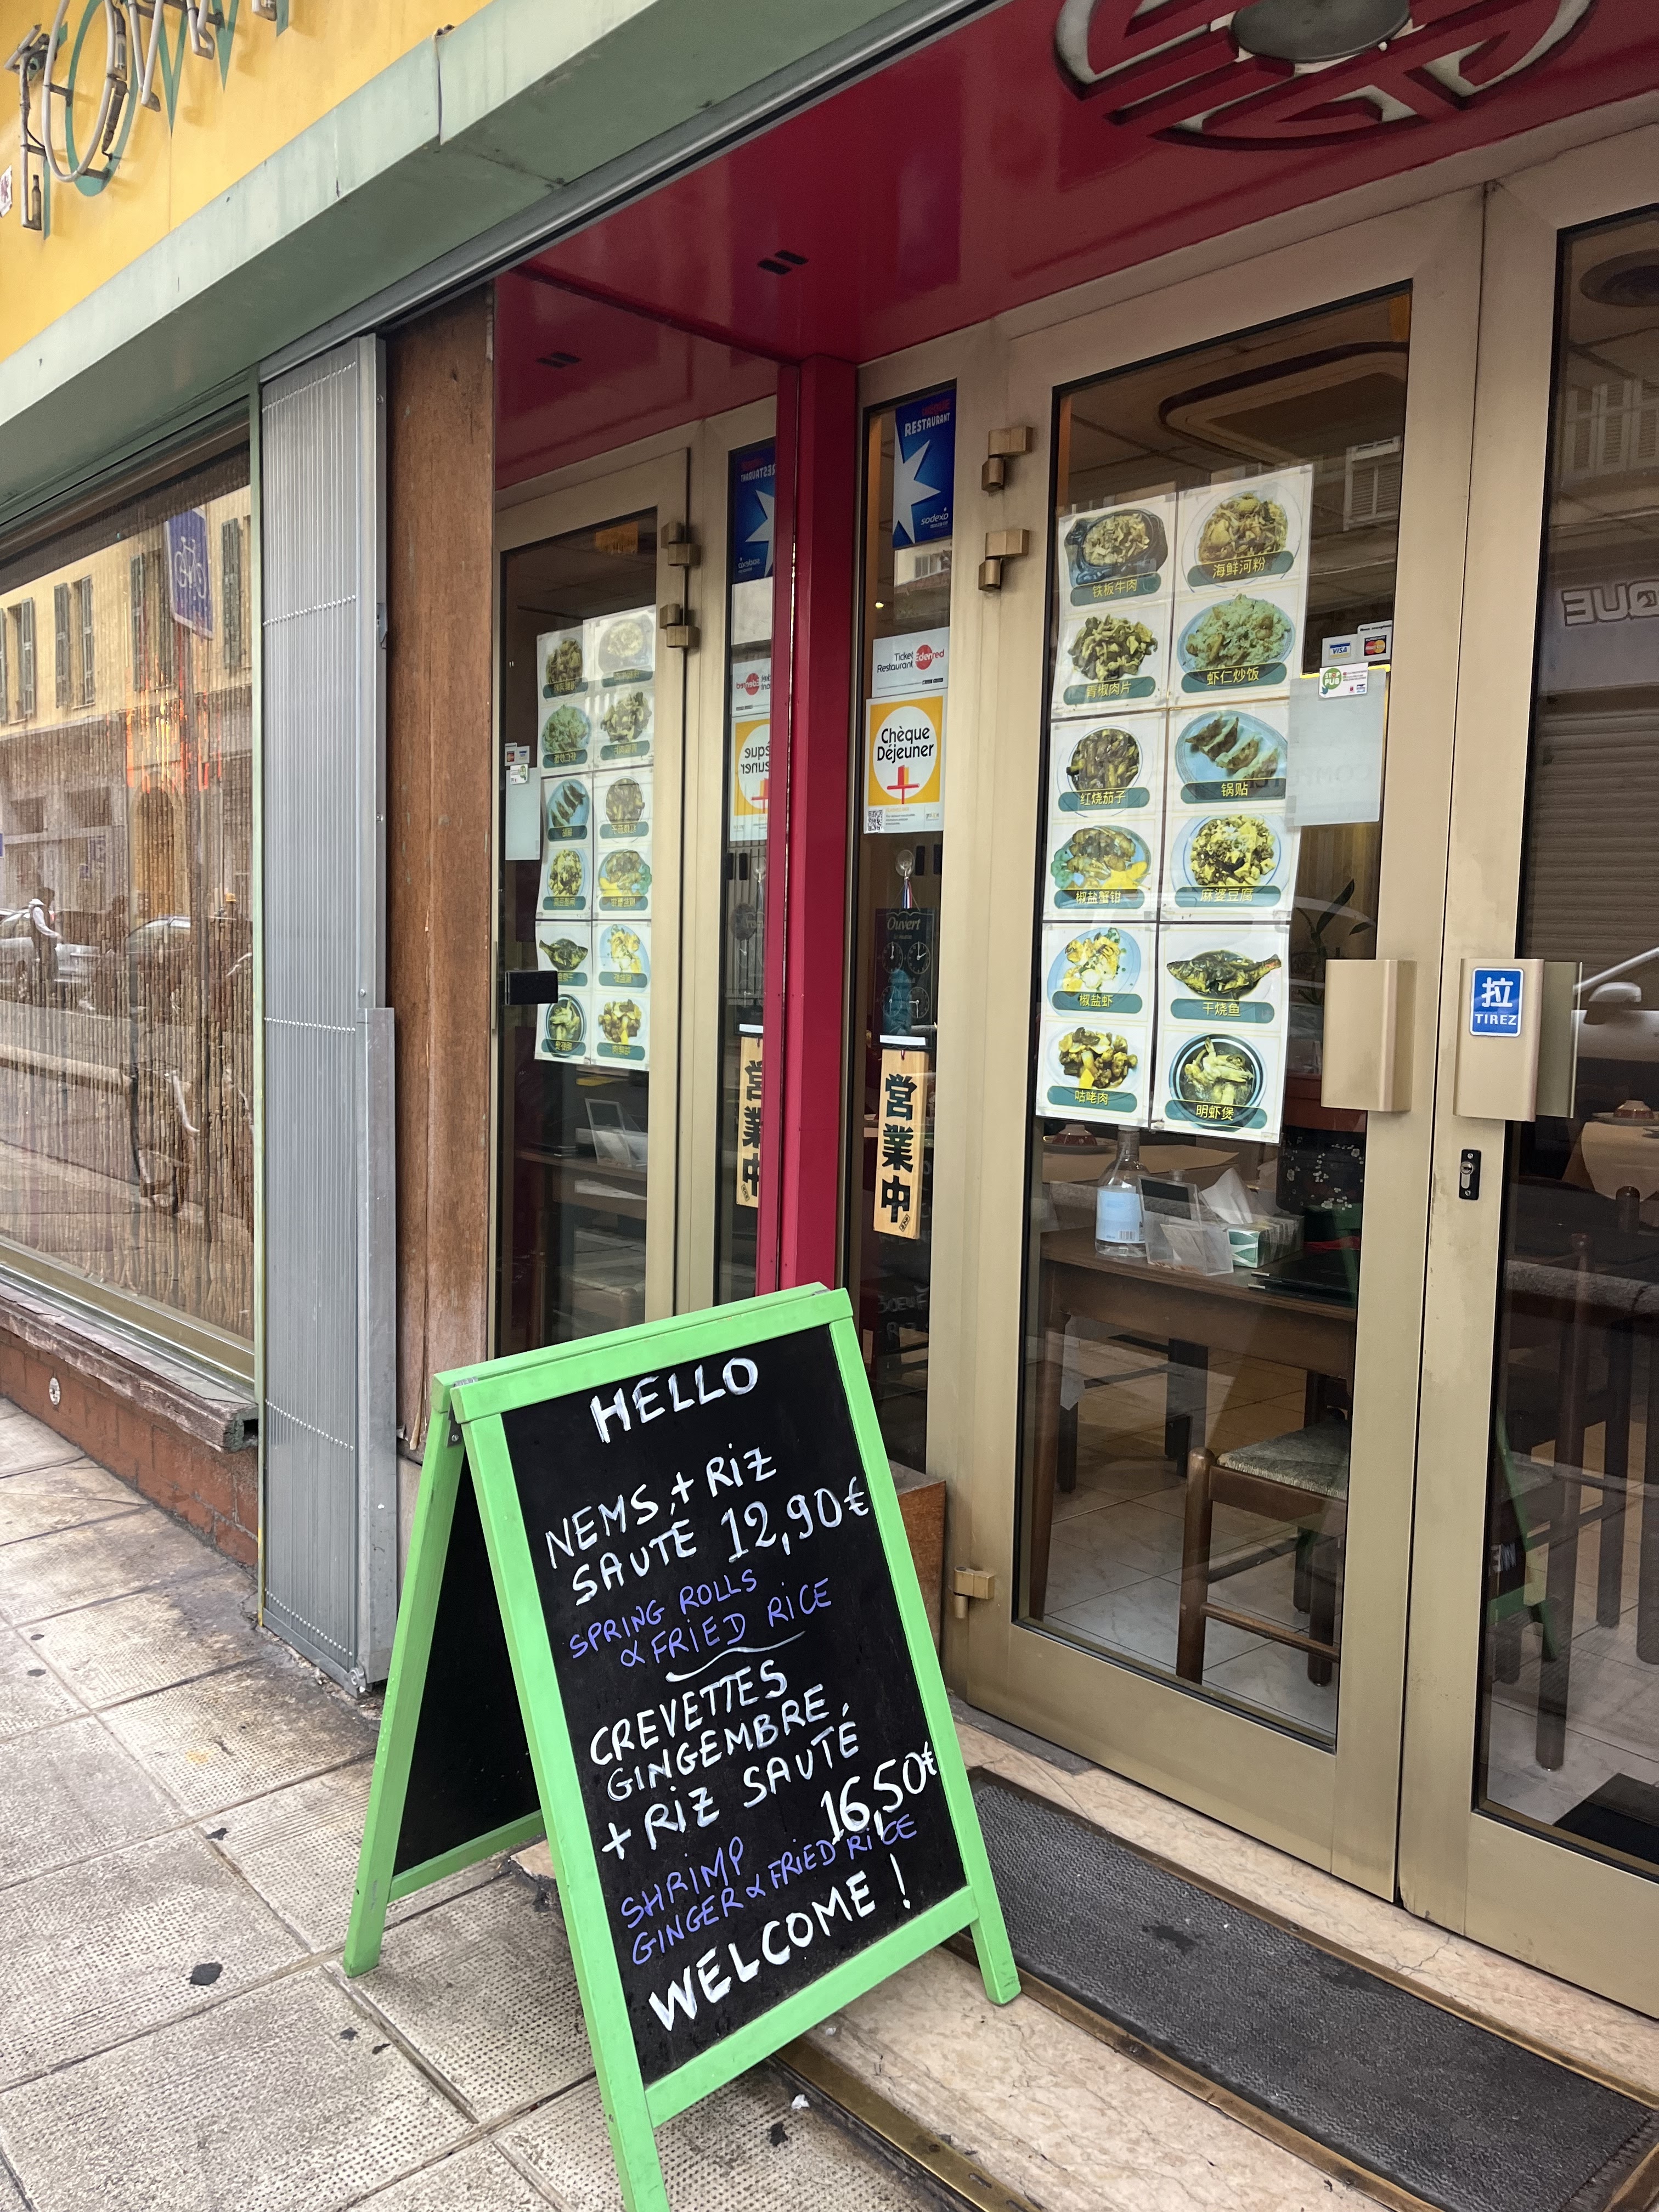 TOWN
RESTAURANT
sodexo
Ticket
Restaurant Edenred
Chèque
Déjeuner
Ouvert
営業中
铁板牛肉
海鲜河粉
青椒肉片
虾仁炒饭
红烧茄子
锅贴
椒盐蟹钳
麻婆豆腐
椒盐虾
干烧鱼
咕咾肉
明虾煲
VISA
MasterCard
STOP
PUB
拉
TIREZ
QUE
HELLO
NEMS + RIZ
SAUTÉ 12,90€
SPRING ROLLS
& FRIED RICE
CREVETTES
GINGEMBRE
+ RIZ SAUTÉ
16,50€
SHRIMP
GINGER & FRIED RICE
WELCOME !